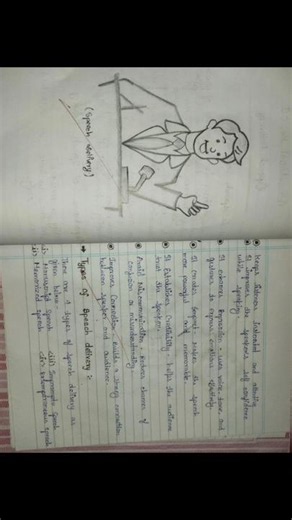 (Speech delivery)
• Keeps listeners interested and attentive
• It improves the speakers self confidence
while speaking.
• It enhances Expression - uses voice, tone, and
gestures to express emotions effectively.
• It creates impact - makes the speech
more powerful and memorable
• It Establishes Credibility - helps the audience
trust the speaker.
• Avoid miscommunication - Reduces chances of
confusion or misunderstanding.
• Improves Connection - Builds a strong connection
between speaker and audience.
→ Types of Speech delivery :-
There are 4 types of speech delivery as
given below:-
i) Manuscript Speech iii) Impromptu Speech
ii) Memorized Speech iv) Extemporaneous Speech